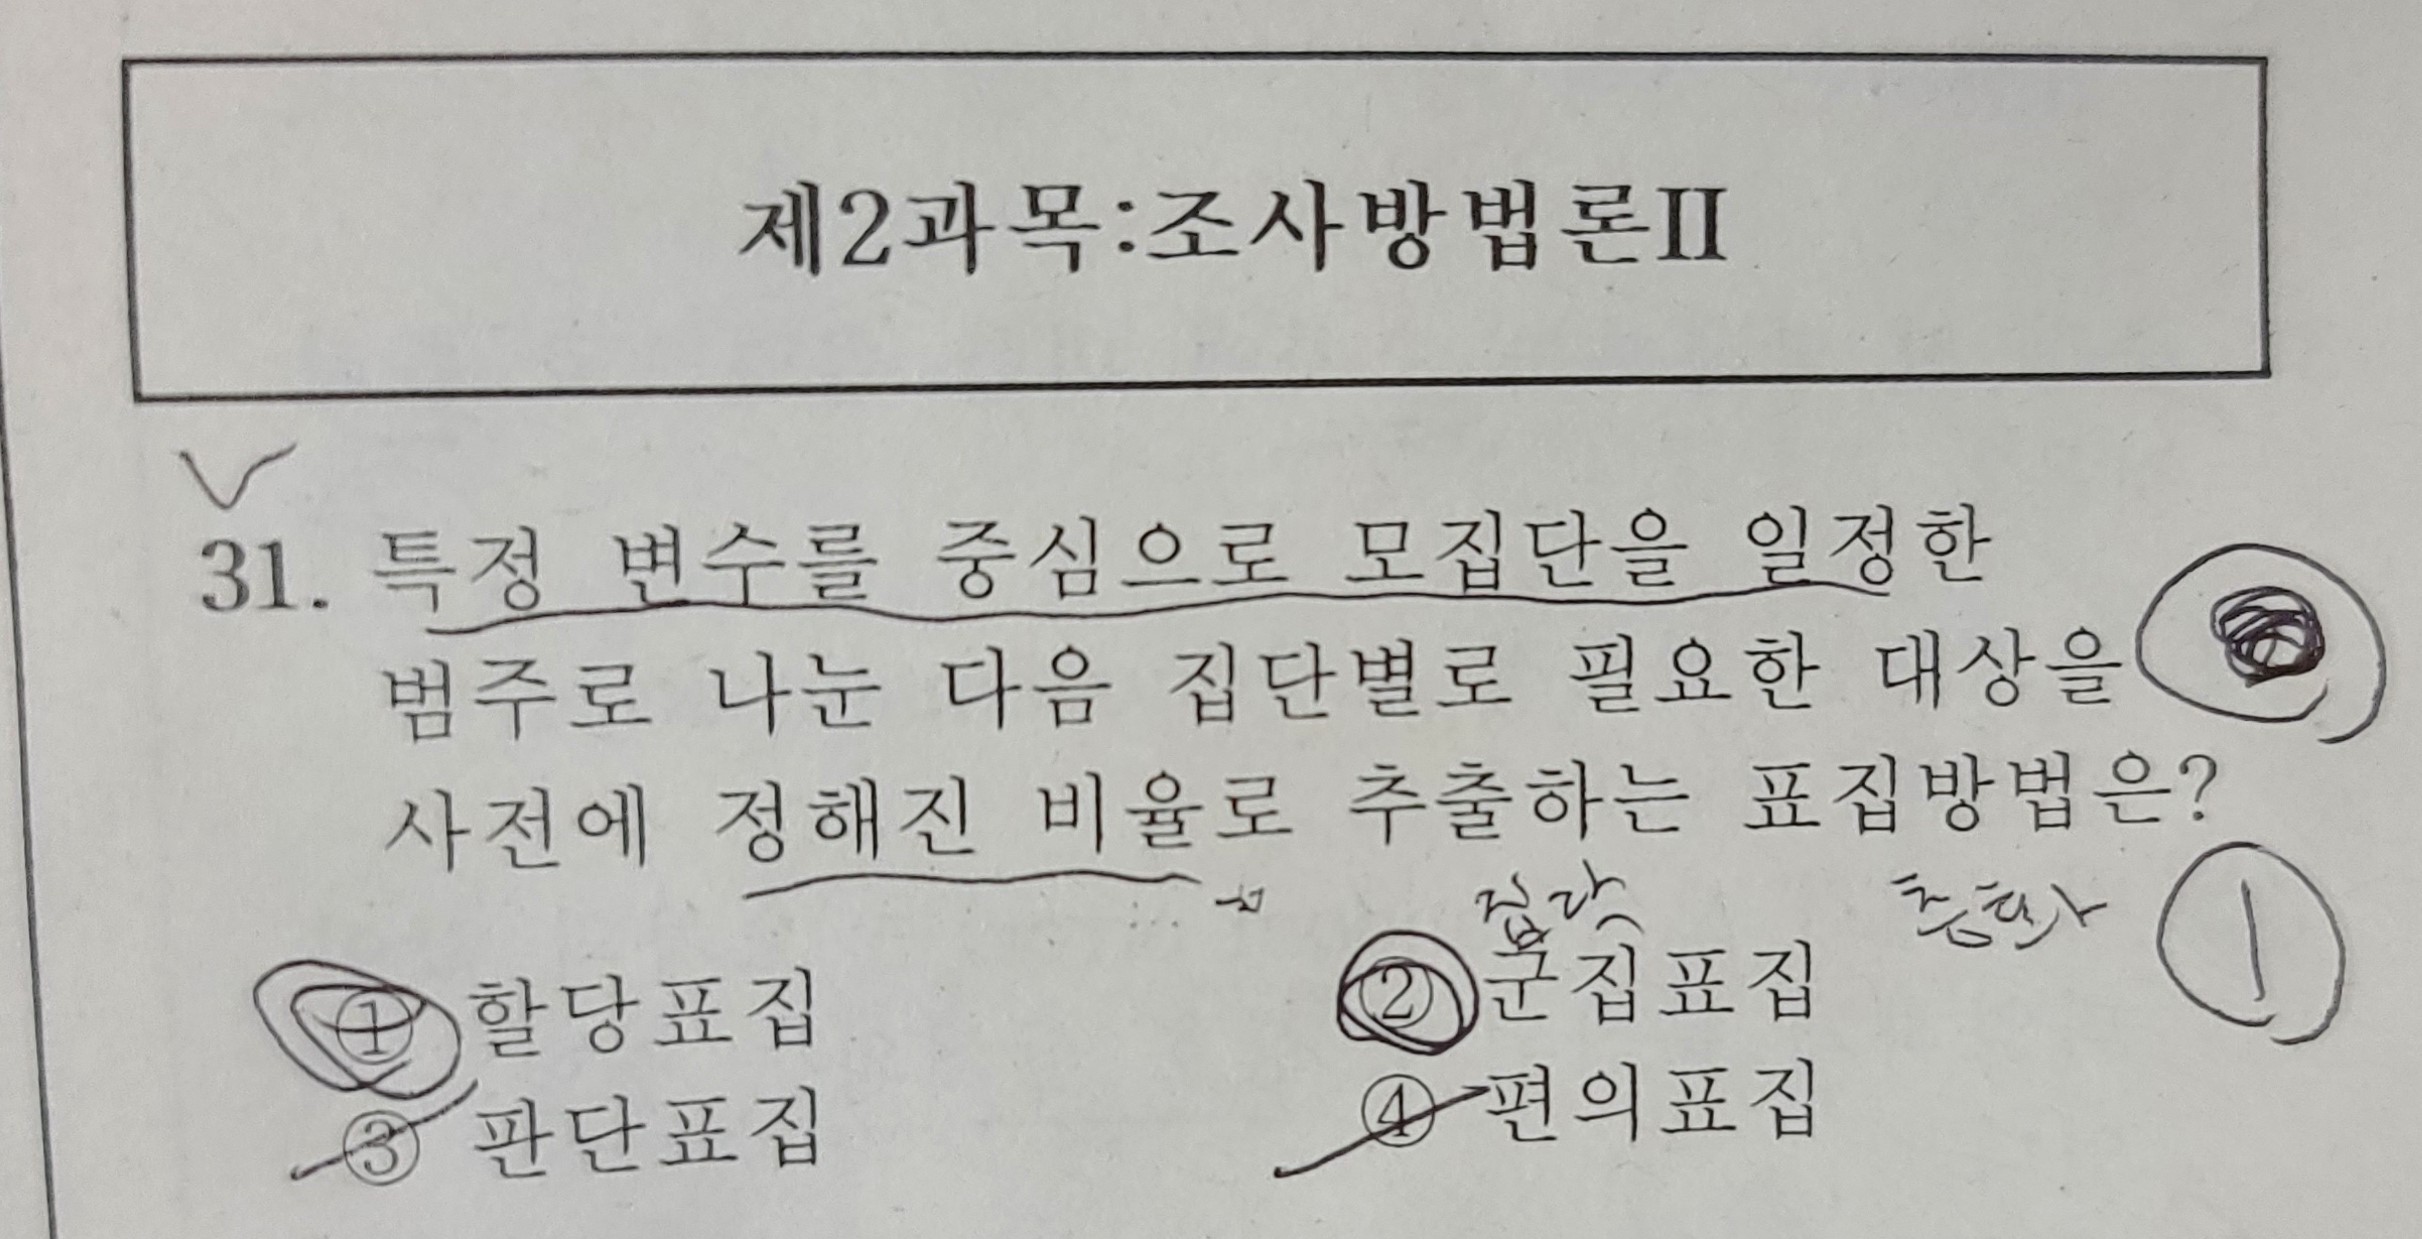 제2과목:조사방법론II
31. 특정 변수를 중심으로 모집단을 일정한
범주로 나눈 다음 집단별로 필요한 대상을
사전에 정해진 비율로 추출하는 표집방법은?
집락
1
① 할당표집 ② 군집표집
③ 판단표집 ④ 편의표집